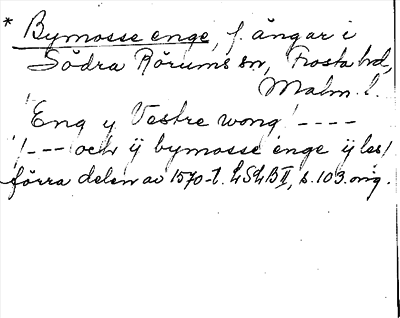 * Bymosse enge, f. ängar i
Södra Rörums sn, Frosta hd,
Malm. l.
/Eng y Vestre wong/ ----
/--- och ÿ bymosse enge ÿ las/
förra delen av 1570-t. LSLB II, s. 103. orig.